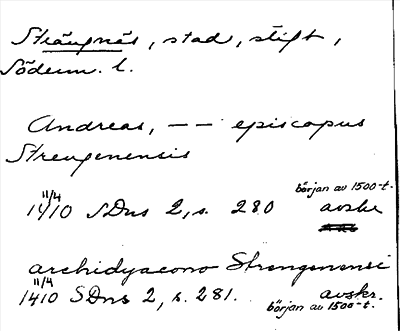 Strängnäs, stad, stift,
Söderm. l.
Andreas, -- episcopus
Strengenensis
11/4 början av 1500-t.
1410 SDns 2, s. 280 avskr
archidyacono Strengenensi
11/4
1410 SDns 2, s. 281. avskr.
början av 1500-t.